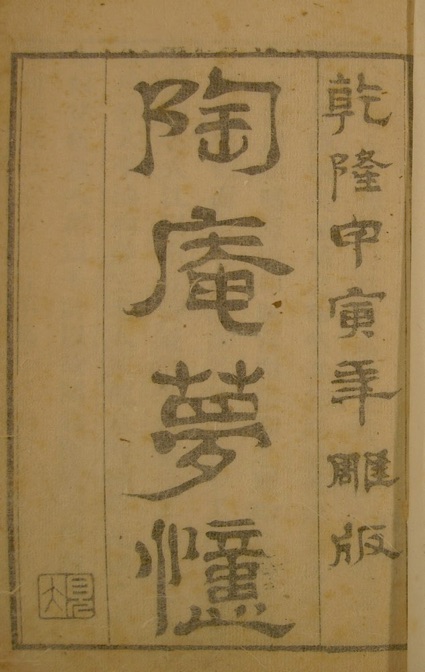 乾隆甲寅年雕版
陶庵夢憶